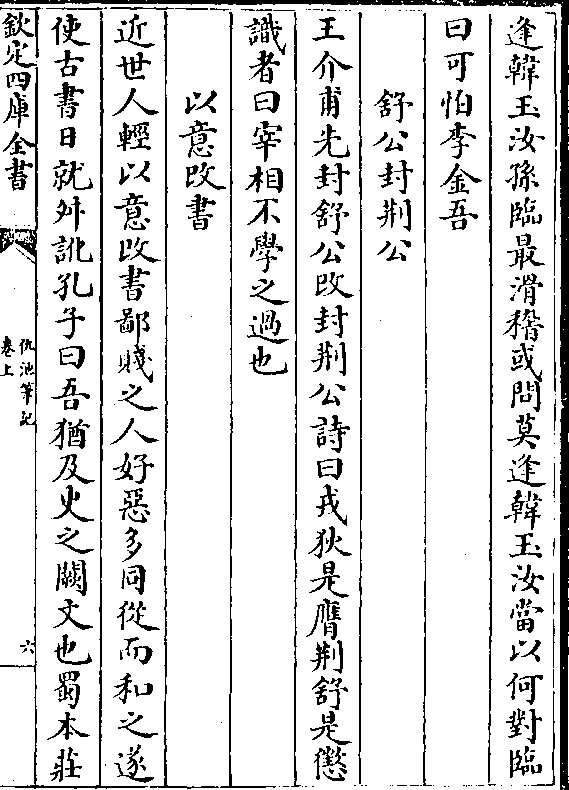 逢韓玉汝孫臨最滑稽或問莫逢韓玉汝當以何對臨
曰可怕李金吾
舒公封荆公
王介甫先封舒公改封荆公詩曰戎狄是膺荆舒是懲
識者曰宰相不學之過也
以意改書
近世人輕以意改書鄙賤之人好惡多同從而和之遂
使古書日就舛訛孔子曰吾猶及史之闕文也蜀本莊
欽定四庫全書
仇池筆記
卷上
六